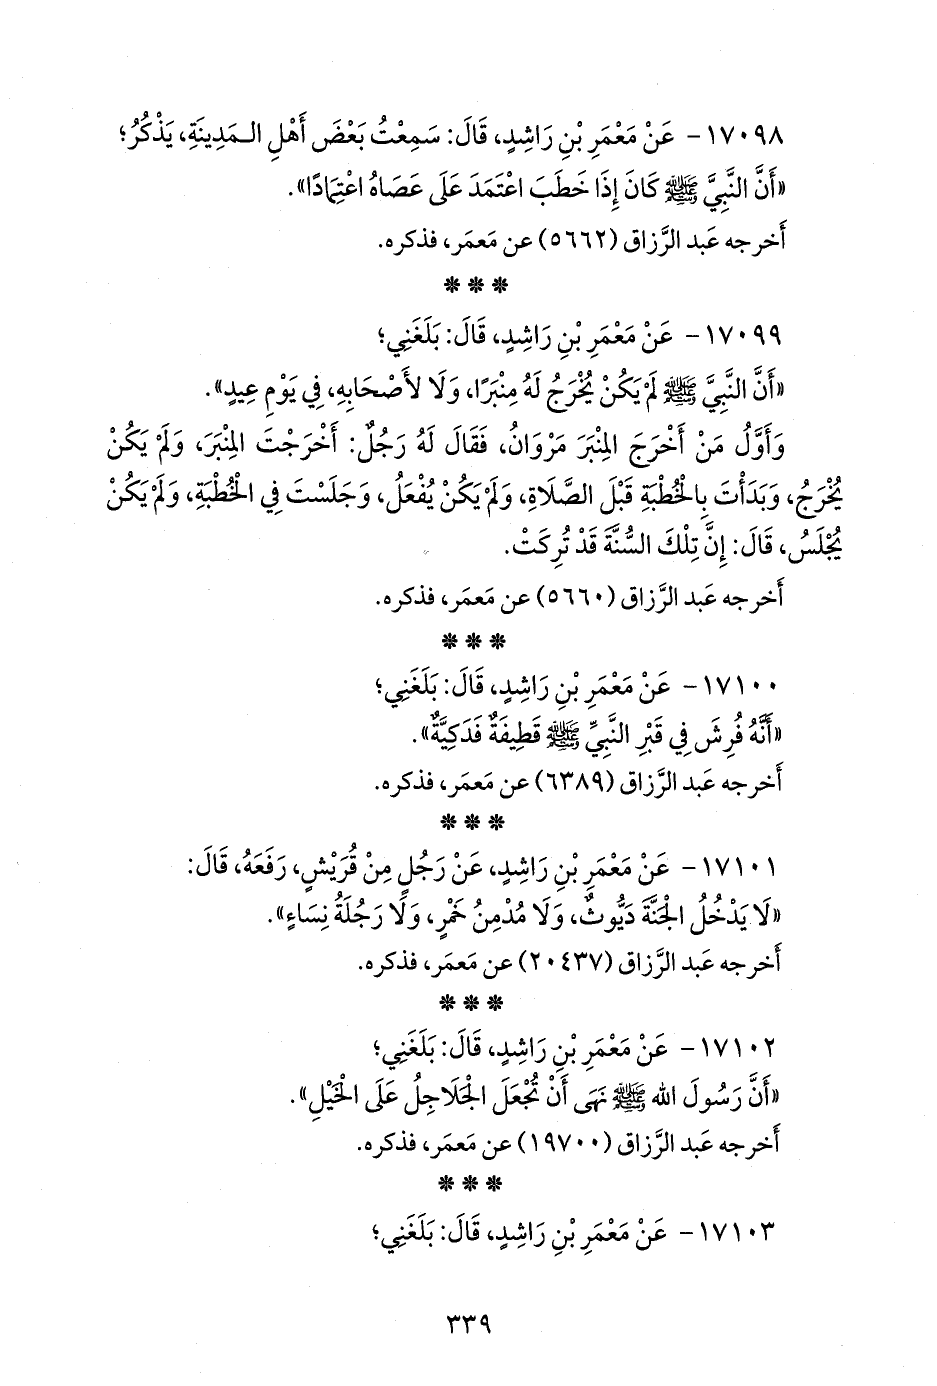 ١٧٠٩٨- عَنْ مَعْمَرِ بْنِ رَاشِدٍ، قَالَ: سَمِعْتُ بَعْضَ أَهْلِ الـمَدِينَةِ، يَذْكُرُ؛
«أَنَّ النَّبِيَّ ﷺ كَانَ إِذَا خَطَبَ اعْتَمَدَ عَلَى عَصَاهُ اعْتِمَادًا».
أَخرجه عَبد الرَّزاق (٥٦٦٢) عن مَعمَر، فذكره.
***
١٧٠٩٩- عَنْ مَعْمَرِ بْنِ رَاشِدٍ، قَالَ: بَلَغَنِي؛
«أَنَّ النَّبِيَّ ﷺ لَمْ يَكُنْ يُخْرَجُ لَهُ مِنْبَرًا، وَلَا لأَصْحَابِهِ، فِي يَوْمِ عِيدٍ».
وَأَوَّلُ مَنْ أَخْرَجَ المِنْبَرَ مَرْوَانُ، فَقَالَ لَهُ رَجُلٌ: أَخْرَجْتَ المِنْبَرَ، وَلَمْ يَكُنْ
يُخْرَجُ، وَبَدَأْتَ بِالْخُطْبَةِ قَبْلَ الصَّلَاةِ، وَلَمْ يَكُنْ يُفْعَلُ، وَجَلَسْتَ فِي الْخُطْبَةِ، وَلَمْ يَكُنْ
يُجْلَسُ، قَالَ: إِنَّ تِلْكَ السُّنَّةَ قَدْ تُرِكَتْ.
أَخرجه عَبد الرَّزاق (٥٦٦٠) عن مَعمَر، فذكره.
***
١٧١٠٠- عَنْ مَعْمَرِ بْنِ رَاشِدٍ، قَالَ: بَلَغَنِي؛
«أَنَّهُ فُرِشَ فِي قَبْرِ النَّبِيِّ ﷺ قَطِيفَةٌ فَدَكِيَّةٌ».
أَخرجه عَبد الرَّزاق (٦٣٨٩) عن مَعمَر، فذكره.
***
١٧١٠١- عَنْ مَعْمَرِ بْنِ رَاشِدٍ، عَنْ رَجُلٍ مِنْ قُرَيْشٍ، رَفَعَهُ، قَالَ:
«لَا يَدْخُلُ الْجَنَّةَ دَيُّوثٌ، وَلَا مُدْمِنُ خَمْرٍ، وَلَا رَجُلَةُ نِسَاءٍ».
أَخرجه عَبد الرَّزاق (٢٠٤٣٧) عن مَعمَر، فذكره.
***
١٧١٠٢- عَنْ مَعْمَرِ بْنِ رَاشِدٍ، قَالَ: بَلَغَنِي؛
«أَنَّ رَسُولَ الله ﷺ نَهَى أَنْ تُجْعَلَ الْجَلَاجِلُ عَلَى الْخَيْلِ».
أَخرجه عَبد الرَّزاق (١٩٧٠٠) عن مَعمَر، فذكره.
***
١٧١٠٣- عَنْ مَعْمَرِ بْنِ رَاشِدٍ، قَالَ: بَلَغَنِي؛
٣٣٩